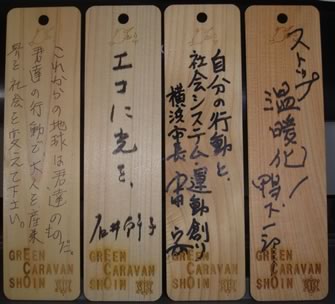 これからの地球は君達のものだ。
君達の行動で大人を産業
界を社会を変えて下さい。
GREEN
CARAVAN
SHOIN
エコに光を、
石井幹子
GREEN
CARAVAN
SHOIN
自分の行動と、
社会システム運動創り
横浜市長 中田宏
GREEN
CARAVAN
SHOIN
ストップ
温暖化!
鴨下一郎
GREEN
CARAVAN
SHOIN